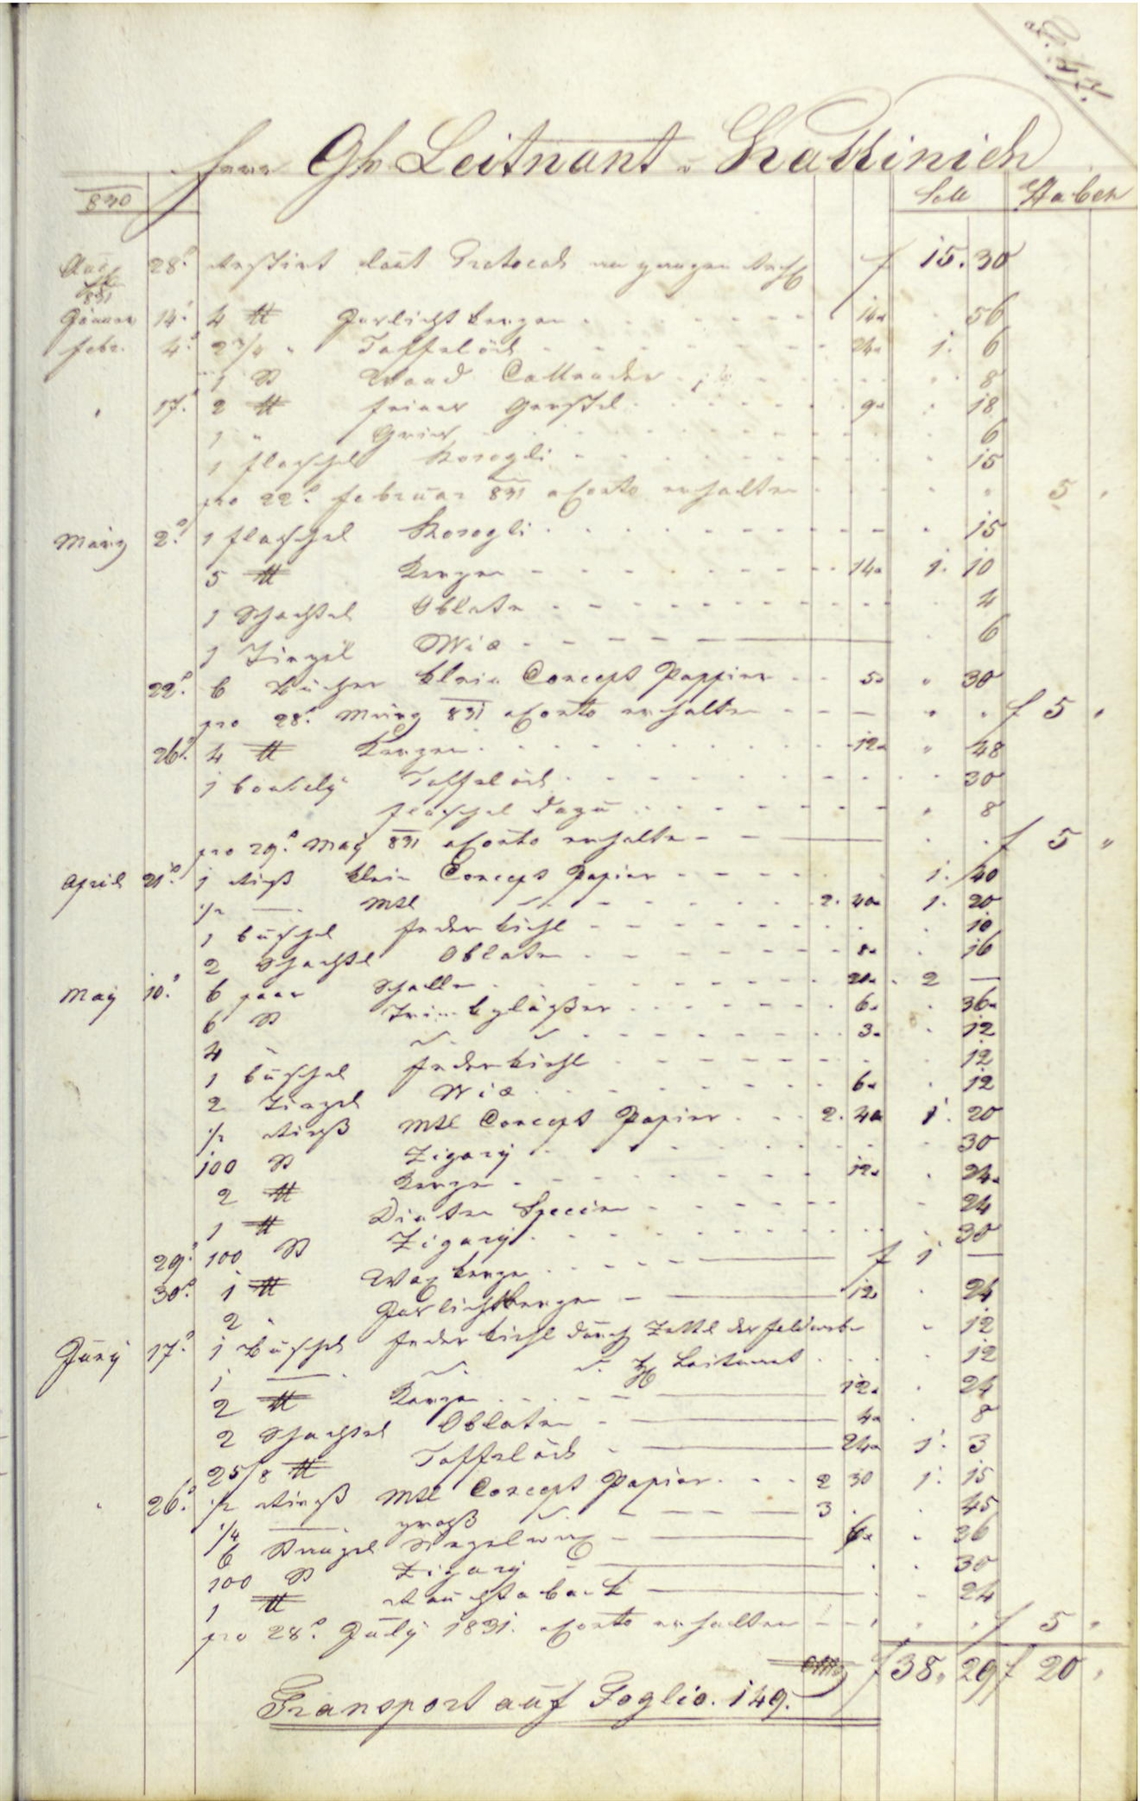 Herr Ghr Leitnant v Krattinich
830 Soll Haben
Aug 28t. Restirt laut Protocoll f 15. 30
831
Jänner 14t. 4 ℔ Garlicht kerzen 14x 56
Febr. 4t. 2 3/4 " Taffelöch 24x 1. 6
1 St Wand Callender 8
" 17t. 2 ℔ feiner Gerstel 9x 18
1 " Gries 6
1 flaschel Rosogli 15
pro 22t. Februar 831 aConto erhalten 5 "
März 2t. 1 flaschel Rosogli 15
5 ℔ Kerzen 14x 1. 10
1 Schachtel Oblate 4
1 Tiegel Wix 6
22t. 6 Bücher klein Concept Pappier 5x " 30
pro 28t. März 831 aConto erhalten f 5 "
26t. 4 ℔ Kerzen 12x " 48
1 boutely Taffelöch 30
flaschel dazu " 8
pro 29t. May 831 aConto erhalten f 5 "
April 21t. 1 Rieß klein Concept Papier 1. 40
1/2 — Mtl 2. 40x 1. 20
1 büschel federkiehl 10
2 Schachtl Oblaten 8x 16
May 10t. 6 paar Schalle 20x 2 —
6 St Trinkgläßer 6x 36x
4 " 3x 12
1 büschel federkiehl 12
2 Tiegel Wix 6x 12
1/2 Rieß Mtl Concept Papier 2. 40 1. 20
100 St Zigary 30
2 ℔ Kerzen 12x 24x
1 ℔ Dinten Specien 24
29t. 100 St Zigary 30
30t. 1 ℔ Wax kerzen f 1 —
2 " Garlichtkerzen 12x 24
Juny 17t. 1 Büschel federkiehl durch Zettl der feldweb " 12
1 — d. H Leitnant 12
2 ℔ Kerzen 12x 24
2 Schachtel Oblaten 4x 8
2 5/8 ℔ Taffelöch 24x 1. 3
" 26t. 1/2 Rieß Mtl Concept Papier 2 30 1. 15
1/4 — groß 3 45
6 Stangel Siegelwax 6x " 36
100 St Zigary 30
1 ℔ Rauchtaback 24
pro 28t. July 1831. aConto erhalten f 5 "
f 38. 29 f 20 "
Transport auf Foglio. 149.